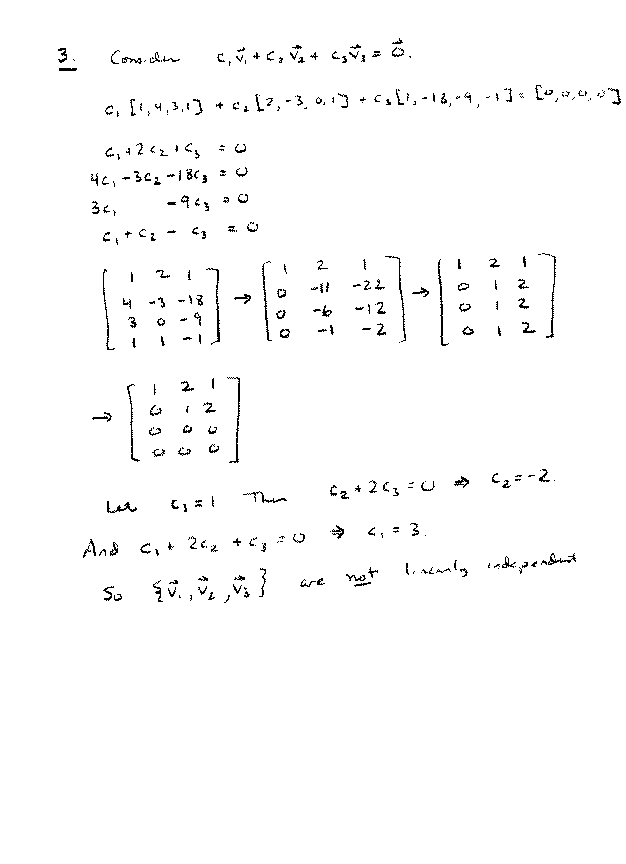 3. Consider c₁v⃗₁ + c₂v⃗₂ + c₃v⃗₃ = 0⃗.
c₁[1,4,3,1] + c₂[2,-3,0,1] + c₃[1,-18,-9,-1] = [0,0,0,0]
c₁+2c₂+c₃ = 0
4c₁-3c₂-18c₃ = 0
3c₁ -9c₃ = 0
c₁+c₂-c₃ = 0
[1 2 1; 4 -3 -18; 3 0 -9; 1 1 -1] → [1 2 1; 0 -11 -22; 0 -6 -12; 0 -1 -2] → [1 2 1; 0 1 2; 0 1 2; 0 1 2]
→ [1 2 1; 0 1 2; 0 0 0; 0 0 0]
Let c₃=1 Then c₂+2c₃=0 ⇒ c₂=-2.
And c₁+2c₂+c₃=0 ⇒ c₁=3.
So {v⃗₁,v⃗₂,v⃗₃} are not linearly independent